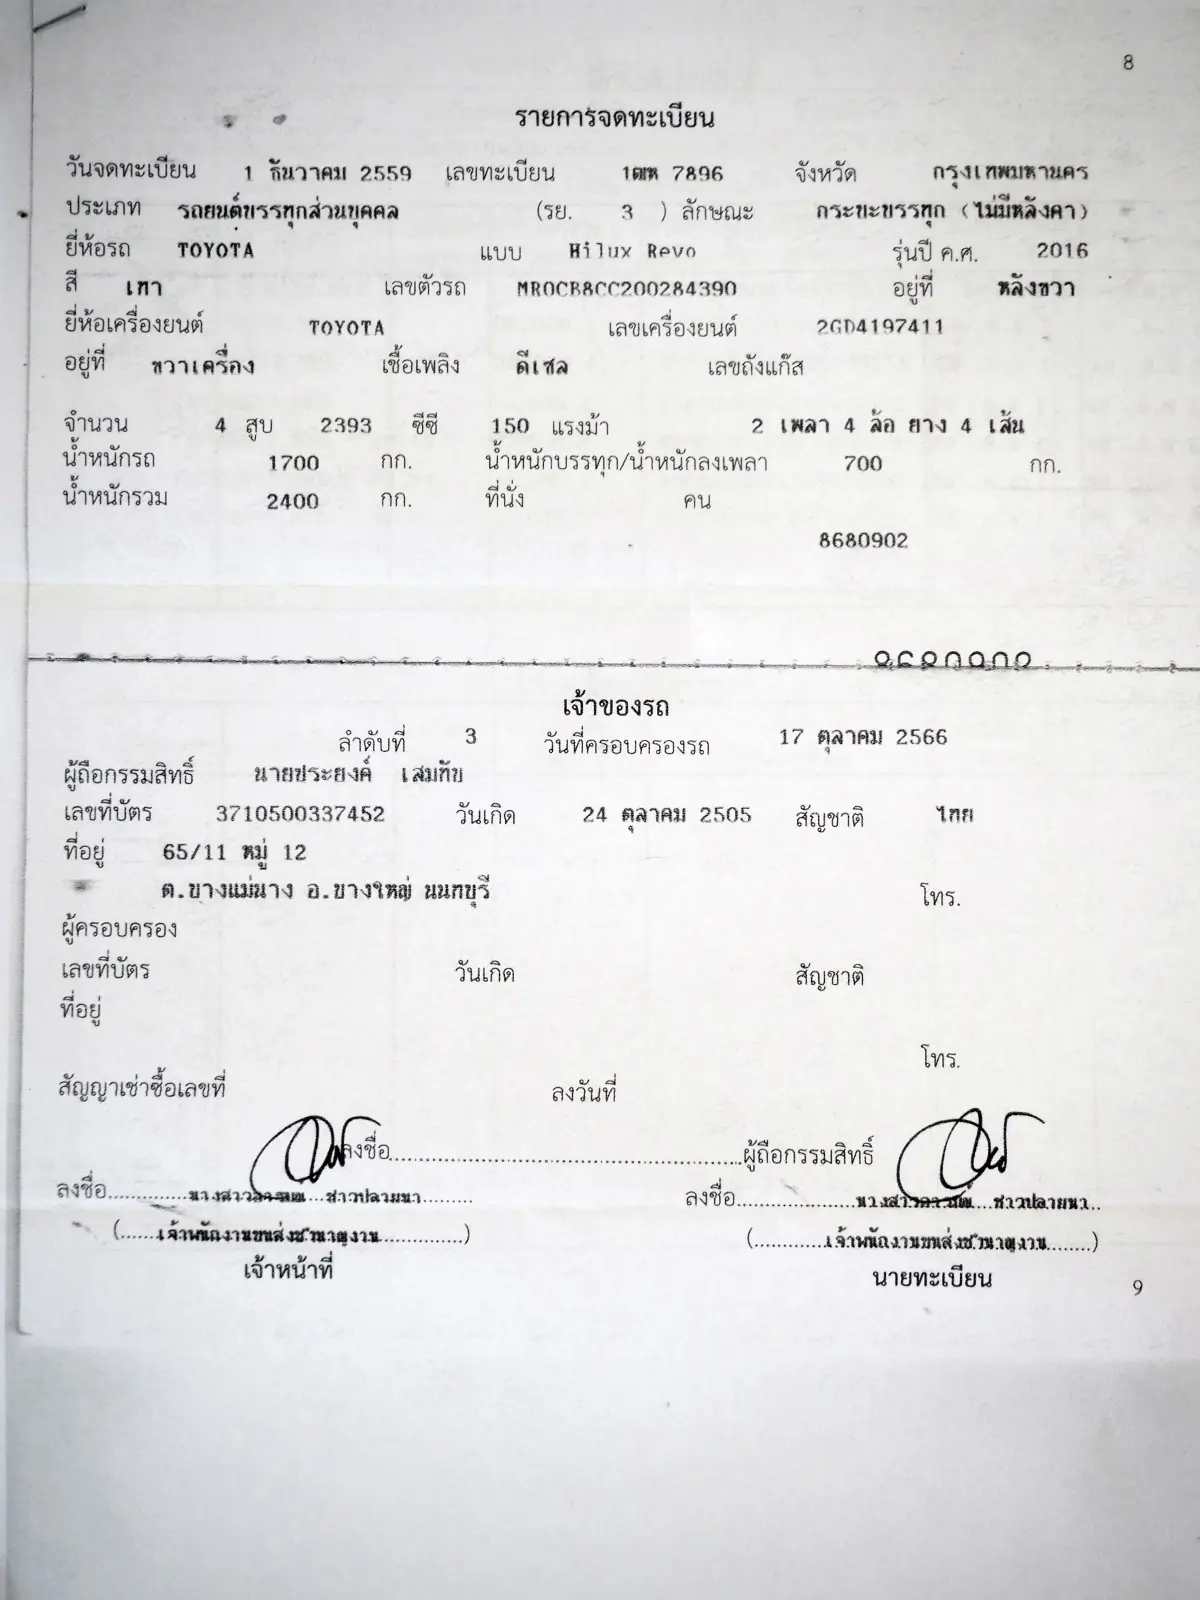 8
รายการจดทะเบียน
วันจดทะเบียน 1 ธันวาคม 2559 เลขทะเบียน 1ฒห 7896 จังหวัด กรุงเทพมหานคร
ประเภท รถยนต์บรรทุกส่วนบุคคล (รย. 3 ) ลักษณะ กระบะบรรทุก (ไม่มีหลังคา)
ยี่ห้อรถ TOYOTA แบบ Hilux Revo รุ่นปี ค.ศ. 2016
สี เทา เลขตัวรถ MR0CB8CC200284390 อยู่ที่ หลังขวา
ยี่ห้อเครื่องยนต์ TOYOTA เลขเครื่องยนต์ 2GD4197411
อยู่ที่ ขวาเครื่อง เชื้อเพลิง ดีเซล เลขถังแก๊ส
จำนวน 4 สูบ 2393 ซีซี 150 แรงม้า 2 เพลา 4 ล้อ ยาง 4 เส้น
น้ำหนักรถ 1700 กก. น้ำหนักบรรทุก/น้ำหนักลงเพลา 700 กก.
น้ำหนักรวม 2400 กก. ที่นั่ง คน
8680902
เจ้าของรถ
ลำดับที่ 3 วันที่ครอบครองรถ 17 ตุลาคม 2566
ผู้ถือกรรมสิทธิ์ นายประยงค์ เสมทับ
เลขที่บัตร 3710500337452 วันเกิด 24 ตุลาคม 2505 สัญชาติ ไทย
ที่อยู่ 65/11 หมู่ 12
ต.บางแม่นาง อ.บางใหญ่ นนทบุรี โทร.
ผู้ครอบครอง
เลขที่บัตร วันเกิด สัญชาติ
ที่อยู่
โทร.
สัญญาเช่าซื้อเลขที่ ลงวันที่
ลงชื่อ ผู้ถือกรรมสิทธิ์
ลงชื่อ ชาวปลายนา ลงชื่อ ชาวปลายนา
(เจ้าพนักงานขนส่งชำนาญงาน) (เจ้าพนักงานขนส่งชำนาญงาน)
เจ้าหน้าที่ นายทะเบียน
9